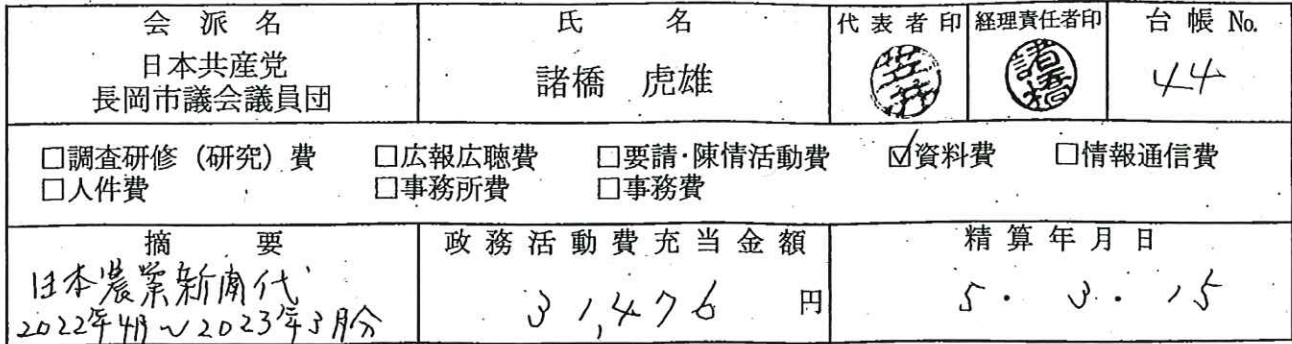 会派名 氏名 代表者印 経理責任者印 台帳No.
日本共産党
長岡市議会議員団
諸橋 虎雄
諸橋
44
□調査研修（研究）費 □広報広聴費 □要請・陳情活動費 ☑資料費 □情報通信費
□人件費 □事務所費 □事務費
摘要 政務活動費充当金額 精算年月日
日本農業新聞代
2022年4月～2023年3月分
31,476 円
5・3・15